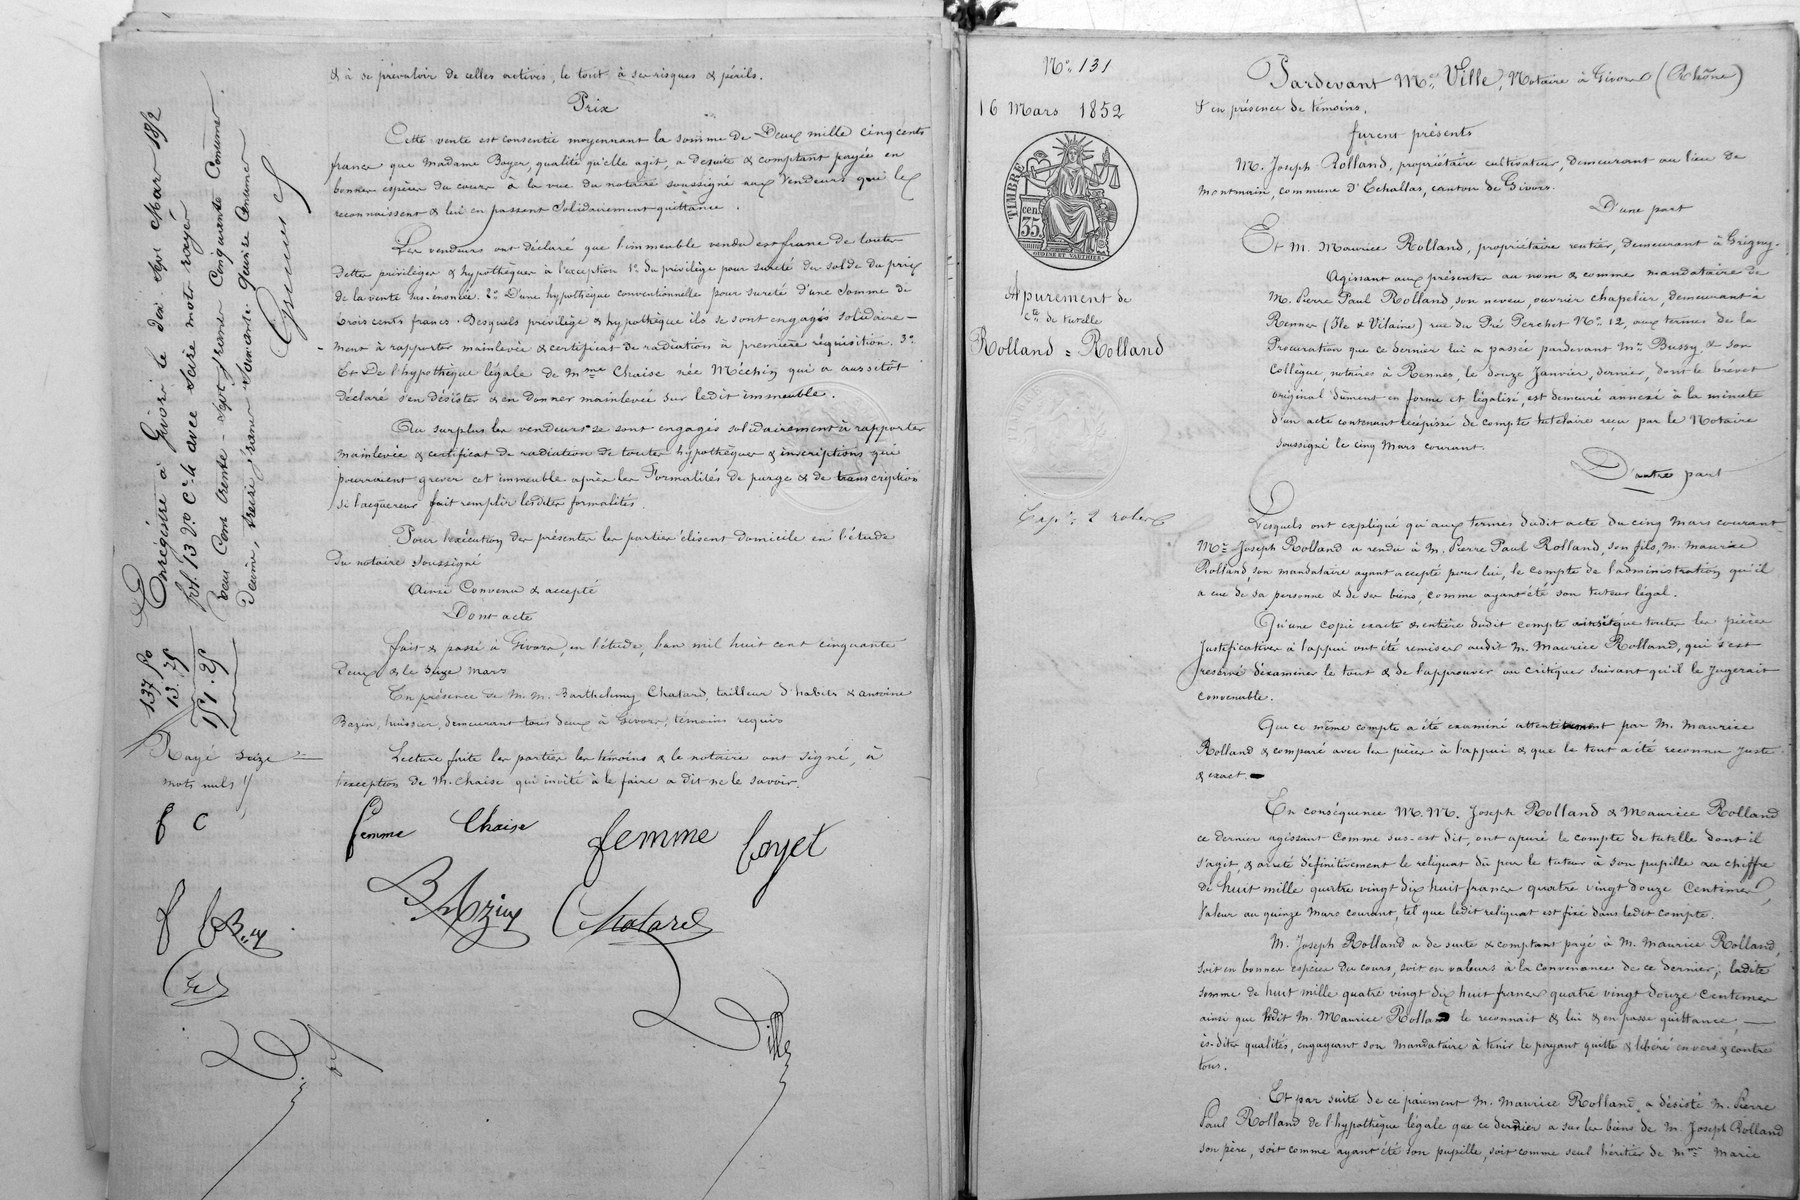 & à se prévaloir de celles actives, le tout à ses risques & périls.
Prix
Cette vente est consentie moyennant la somme de Deux mille cinq cents
francs que Madame Boyer, qualité qu'elle agit, a de suite & comptant payée en
bonnes espèces du cours à la vue du notaire soussigné aux Vendeurs qui le
reconnaissent & lui en passent Solidairement quittance.
Les vendeurs ont déclaré que l'immeuble vendu est franc de toutes
dettes privilèges & hypothèques à l'exception 1º du privilège pour sureté du solde du prix
de la vente sus-énoncée. 2º D'une hypothèque conventionnelle pour sureté d'une Somme de
trois cents francs. Desquels privilège & hypothèque ils se sont engagés solidaire-
ment à rapporter mainlevée & certificat de radiation à première réquisition. 3º
Et De l'hypothèque légale de Mme Chaise née Méchin qui a aussitôt
déclaré s'en désister & en donner mainlevée sur ledit immeuble.
Au surplus les vendeurs se sont engagés solidairement à rapporter
mainlevée & certificat de radiation de toutes hypothèques & inscriptions qui
pourraient grever cet immeuble après les Formalités de purge & de transcription
si l'acquéreur fait remplir lesdites formalités.
Pour l'exécution des présentes les parties élisent domicile en l'étude
du notaire soussigné
Ainsi Convenu & accepté
Dont acte
fait & passé à Givors, en l'étude, l'an mil huit cent cinquante
deux & le seize mars
En présence de M. M. Barthelemy Chatard, tailleur d'habits & antoine
Bazin, huissier, demeurant tous deux à Givors, témoins requis
Lecture faite les parties les témoins & le notaire ont signé, à
l'exception de M. Chaise qui invité à le faire a dit ne le savoir.
femme Chaise femme boyet
BAzin Chatard
Ville
Enregistré à Givors le dix sept Mars 1852
fol. 13 Vº Cº 4 avec seize mots rayés
reçu Cent trente-sept francs Cinquante Centimes
Decime, treize francs Soixante quinze Centimes
137.50
13.75
151.25
Rayé seize
mots nuls
f C
f b B
Nº 131
16 Mars 1852
TIMBRE
35 cen.
OUDINÉ ET VAUTHIER
Apurement de
cte de tutelle
Rolland = Rolland
Exp. 2 roles
Pardevant Me Ville, Notaire à Givors (Rhône)
& en présence de témoins.
furent présents
M. Joseph Rolland, propriétaire cultivateur, demeurant au lieu de
Montmain, commune d'Echallas, canton de Givors.
D'une part
Et M. Maurice Rolland, propriétaire rentier, demeurant à Grigny.
Agissant aux présentes au nom & comme mandataire de
M. Pierre Paul Rolland, son neveu, ouvrier chapelier, demeurant à
Rennes (Ile & Vilaine) rue du Pré Perchet Nº 12, aux termes de la
Procuration que ce dernier lui a passée pardevant Me Bussy, & son
Collègue, notaires à Rennes, le douze Janvier, dernier, dont le brévet
original dûment en forme et légalisé, est demeuré annexé à la minute
d'un acte contenant récépissé de compte tutélaire reçu par le Notaire
soussigné le cinq Mars courant.
D'autre part
Lesquels ont expliqué qu'aux termes dudit acte du cinq Mars courant
Mr Joseph Rolland a rendu à M. Pierre Paul Rolland, son fils, M. Maurice
Rolland, son mandataire ayant accepté pour lui, le compte de l'administration qu'il
a eue de sa personne & de ses biens, comme ayant été son tuteur légal.
Qu'une copie exacte & entière dudit compte ainsi que toutes les pièces
Justificatives à l'appui ont été remises audit M. Maurice Rolland, qui s'est
réservé d'examiner le tout & de l'approuver ou critiquer suivant qu'il le Jugerait
convenable.
Que ce même compte a été examiné attentivement par M. Maurice
Rolland & comparé avec les pièces à l'appui & que le tout a été reconnu juste
& exact.
En conséquence M. M. Joseph Rolland & Maurice Rolland
ce dernier agissant comme sus-est dit, ont apuré le compte de tutelle dont il
s'agit, & arrêté définitivement le reliquat dû par le tuteur à son pupille au chiffre
de huit mille quatre vingt dix huit francs quatre vingt douze Centimes,
Valeur au quinze Mars courant, tel que ledit reliquat est fixé dans ledit compte.
M. Joseph Rolland a de suite & comptant payé à M. Maurice Rolland,
soit en bonnes espèces du cours, soit en valeurs à la convenance de ce dernier, ladite
somme de huit mille quatre vingt dix huit francs quatre vingt douze Centimes
ainsi que ledit M. Maurice Rolland le reconnait & lui & en passe quittance,
es-dites qualités, engageant son mandataire à tenir le payant quitte & libéré envers & contre
tous.
Et par suite de ce paiement M. Maurice Rolland, a désisté M. Pierre
Paul Rolland de l'hypothèque légale que ce dernier a sur les biens de M. Joseph Rolland
son père, soit comme ayant été son pupille, soit comme seul héritier de Mme Marie